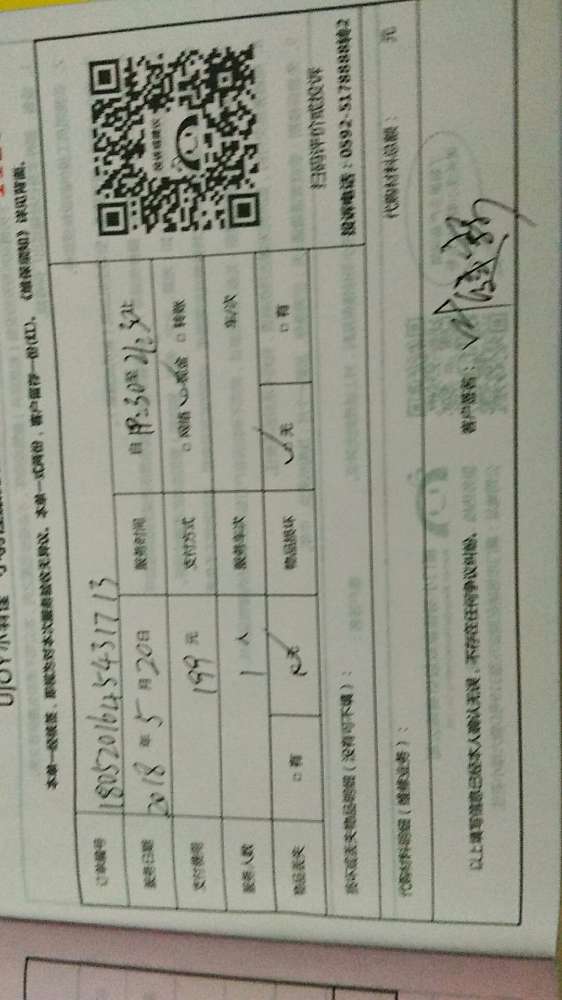 本单一经续签，即视为对本次服务验收无异议。本单一式两份，客户留存一份(红)。《维保须知》详见背面。
订单编号 180520164543171713
服务日期 2018年5月20日 服务时间 自18:30至21:30止
支付费用 199元 支付方式 □网络 ✓现金 □转账
服务人数 1人 服务车次 车/次
物品丢失 □有 ✓无 物品损坏 ✓无 □有
投诉或建议
扫码评价或投诉
投诉电话：0592-5178888转2
损坏或丢失物品明细（没有可不填）：
代购材料明细（维修业务）： 代购材料总额： 元
以上填写信息已经本人确认无误，不存在任何争议纠纷。 客户签名：